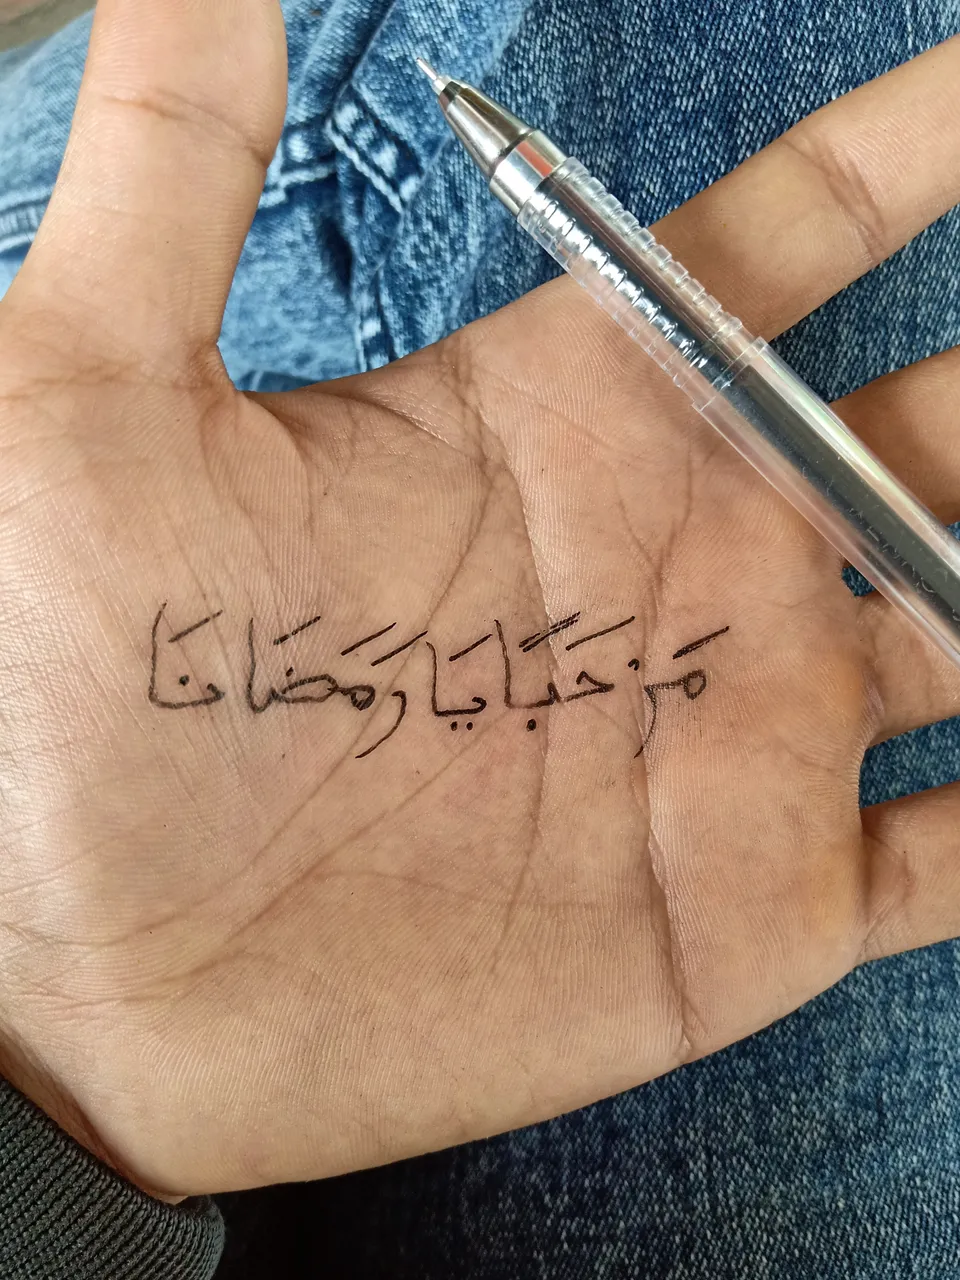 مَرْحَبًا يَا رَمَضَانَا